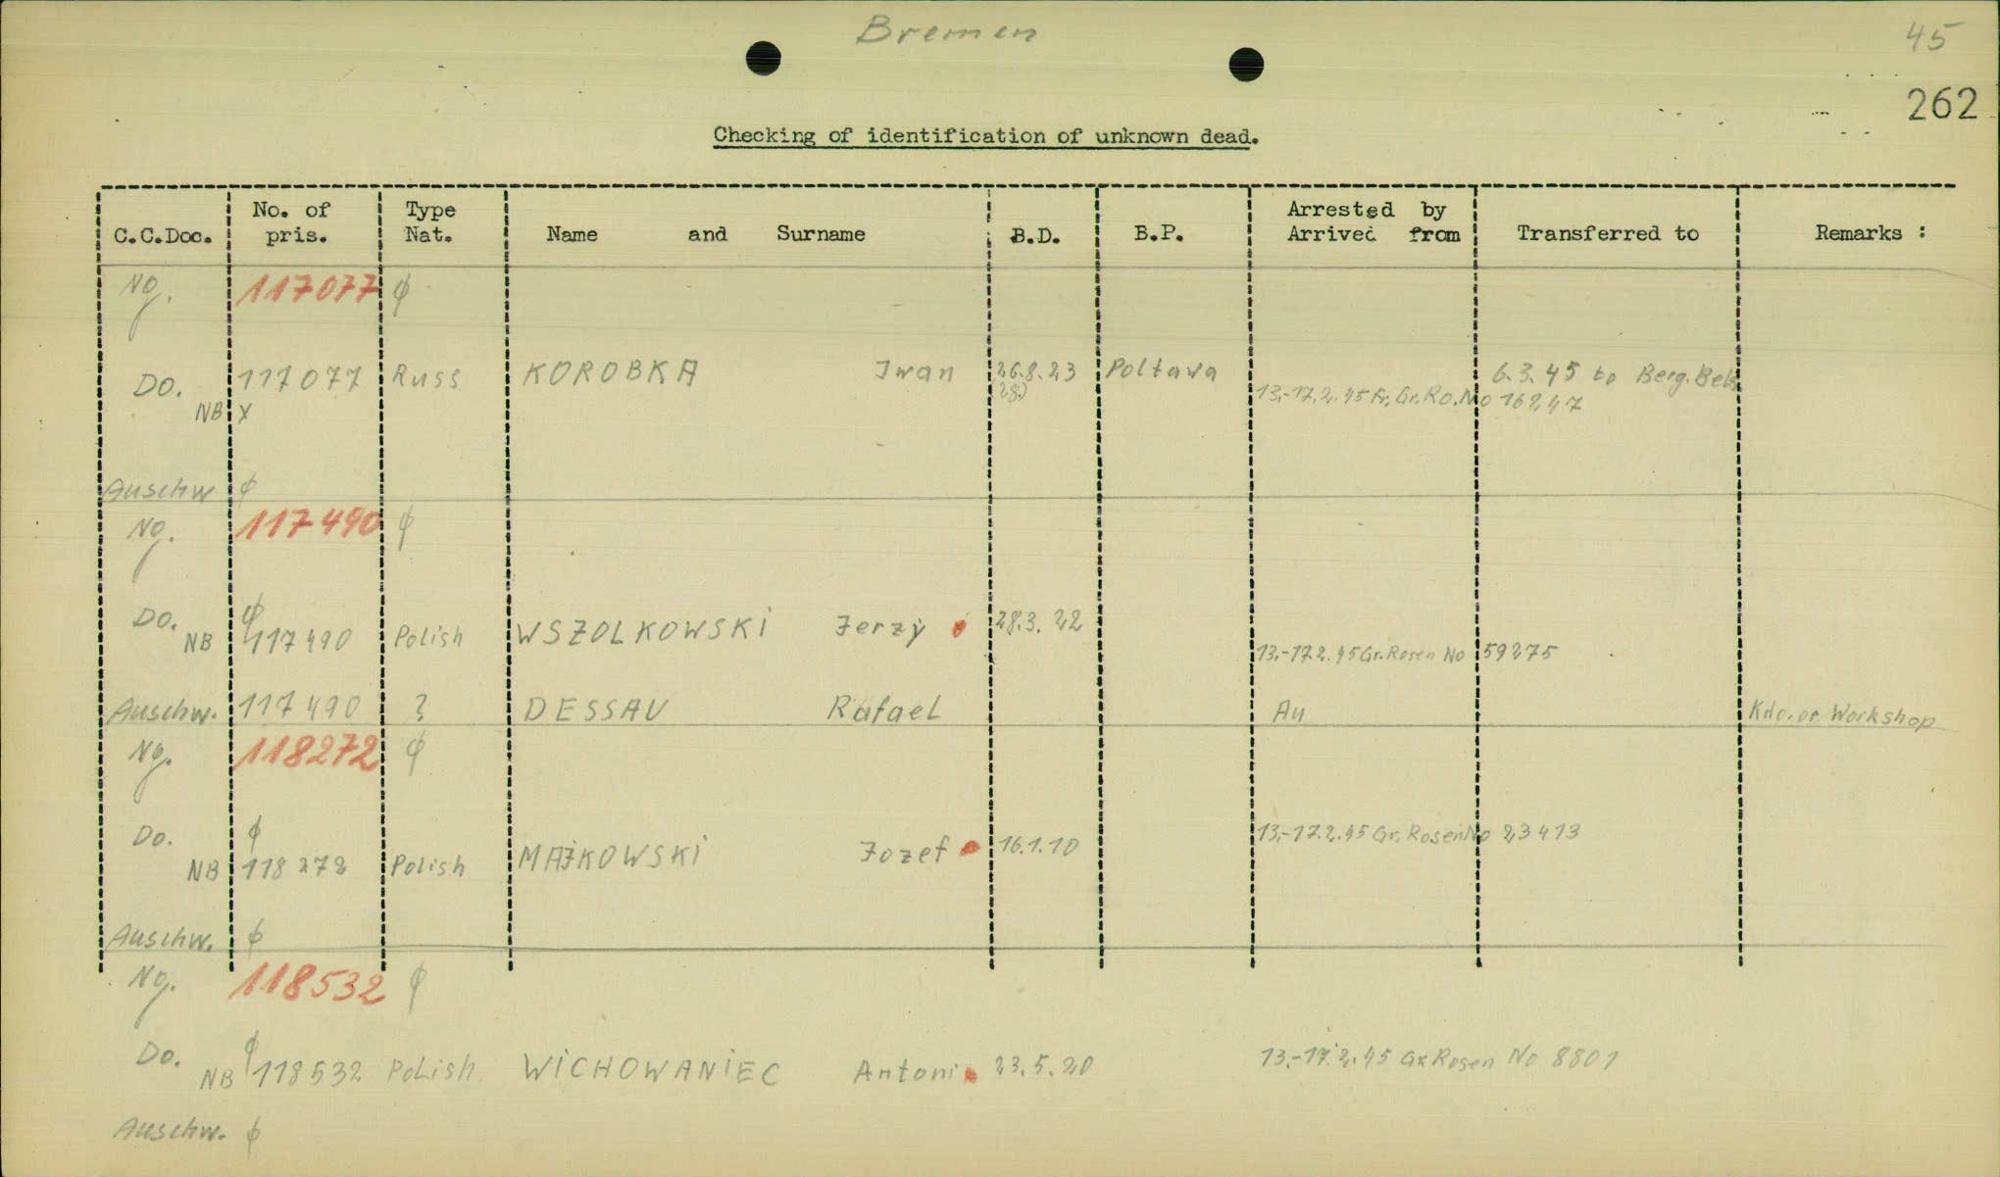 Bremen
45
262
Checking of identification of unknown dead.
C.C.Doc. No. of pris. Type Nat. Name and Surname B.D. B.P. Arrested by Arrived from Transferred to Remarks :
Ng. 117077 φ
Do. 117077 Russ KOROBKA Iwan 26.8.23 Poltava 6.3.45 to Berg. Bels
(28) 13.-17.2.45 fr. Gr. Ro. No 16247
NB X
Auschw φ
Ng. 117490 φ
Do. φ
NB 117490 Polish WSZOLKOWSKI Jerzy 28.3.22
13.-17.2.45 Gr. Rosen No 59275
Auschw. 117490 ? DESSAU Rafael Au Kdo. or Workshop
Ng. 118272 φ
Do. φ 13.-17.2.45 Gr. Rosen No 23413
NB 118272 Polish MAJKOWSKI Jozef 16.1.10
Auschw. φ
Ng. 118532 φ
Do. φ 13.-17.2.45 Gr Rosen No 8801
NB 118532 Polish WICHOWANIEC Antoni 23.5.20
Auschw. φ